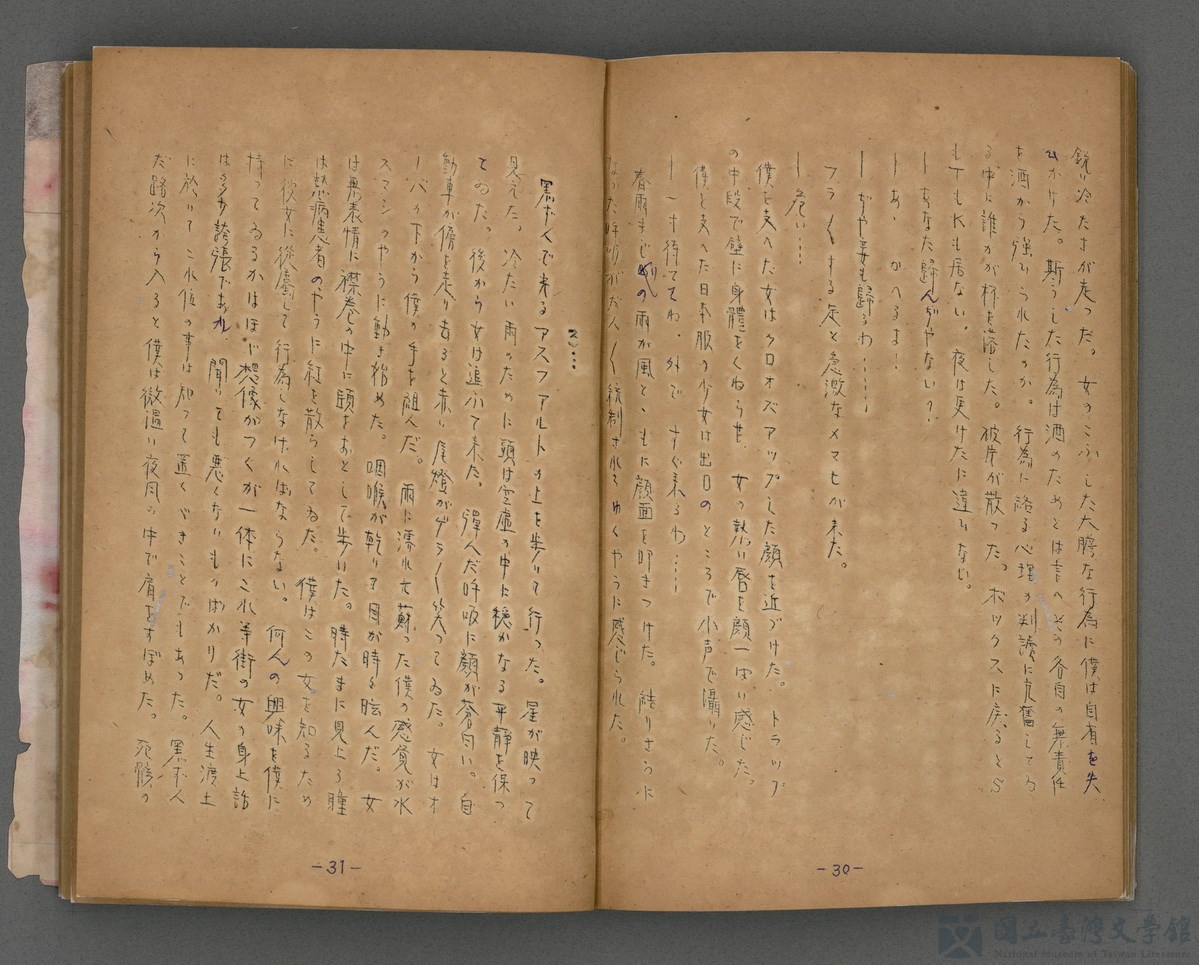 鋭い冷たさが走った。女のこふした大膽な行為に僕は自有を失
ひかけた。斯うした行為は酒のためとは言へその各自の無責任
を酒から強ひられたのか。行為に踊る心理の判讀に亢奮してゐ
る中に誰かが杯を落した。彼片が散った。ボックスに戻るとS
もTもKも居ない。夜は更けたに違ひない。
―あなた歸んぢやない？
―あゝかへるよ！
―ぢや妾も歸るわ……
フラ〱する足と急激なメマヒが来た。
―危い…
僕を支へた女はクロオズアップした顔を近づけた。トラップ
の中段で壁に身體をくねらせ、女の熱い唇を顔一ぱい感じた。
僕を支へた日本服の少女は出口のところで小声で囁いた。
―一寸待ってね。外で。すぐ来るわ……
春雨まじりの雨が風とゝもに顔面を叩きつけた。
なった呼吸がだん〱統制されてゆくやうに感じられた。
2……
黒ずんで来るアスファアルトの上を歩いて行った。星が映って
見えた。冷たい雨のために頭は空虚の中に穏かなる平靜を保っ
てゐた。後から女は追ふて来た。彈んだ呼吸に顔が蒼白い。自
動車が傍を走り去ると赤い尾燈がゲラ〱笑ってゐた。女はオ
ーバの下から僕の手を組んだ。雨に濡れて蘇った僕の感覚が水
スマシのやうに動き始めた。咽喉が乾いて目が時々眩んだ。女
は無表情に襟巻の中に頭をおとして歩いた。時たまに見上る瞳
は熱病患者のやうに紅を散らしてゐた。僕はこの女を知るため
に彼女に從屬して行為しなければならない。何んの興味を僕に
持ってゐるかはほゞ想像がつくが一体にこれ等街の女の身上話
は多少誇張であれ、聞いても悪くないものばかりだ。人生渡土
に於いてこれ位の事は知って置くべきことでもあった。黒ずん
だ路次から入ると僕は微温い夜風の中で肩をすぼめた。死骸の
-31-
-30-
国立臺灣文學館
National Museum of Taiwan Literature